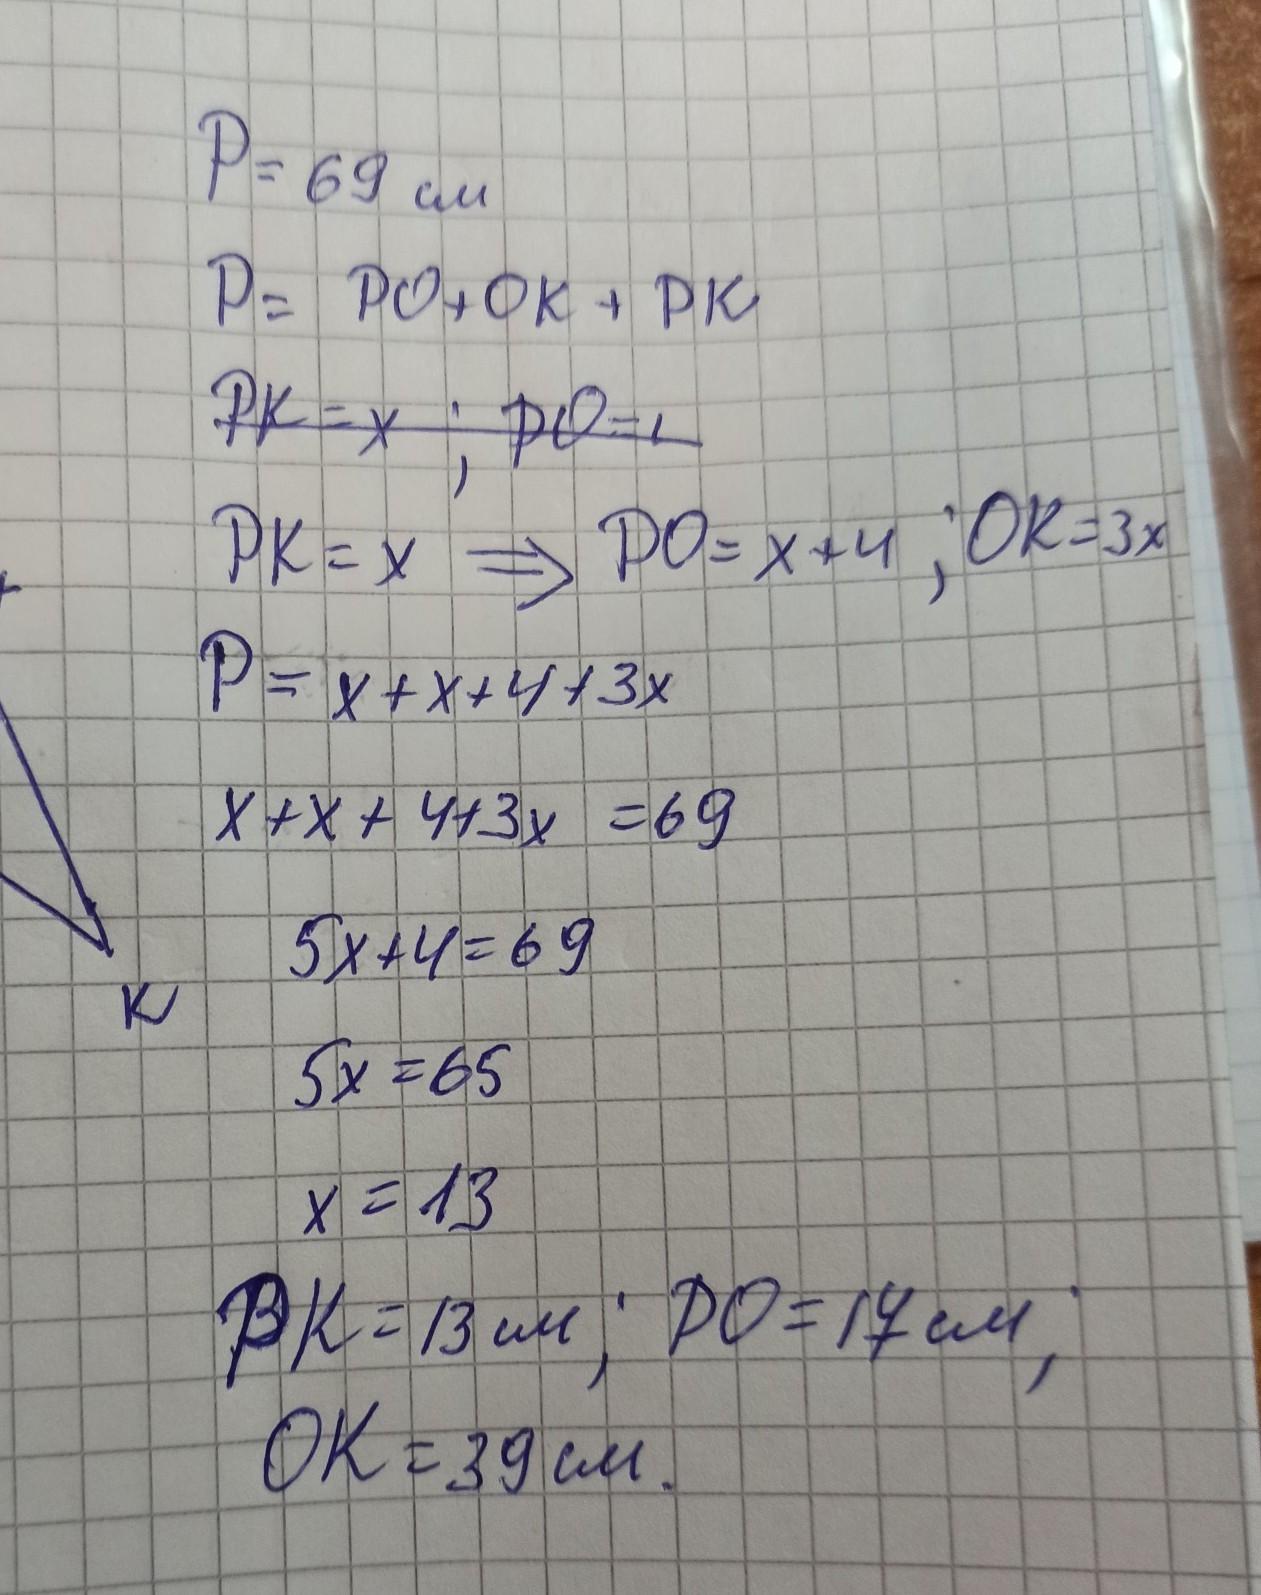 P = 69 см
P = PO + OK + PK
PK = x ; PO =
PK = x ⇒ PO = x + 4 ; OK = 3x
P = x + x + 4 + 3x
x + x + 4 + 3x = 69
5x + 4 = 69
K
5x = 65
x = 13
PK = 13 см ; PO = 17 см ;
OK = 39 см.